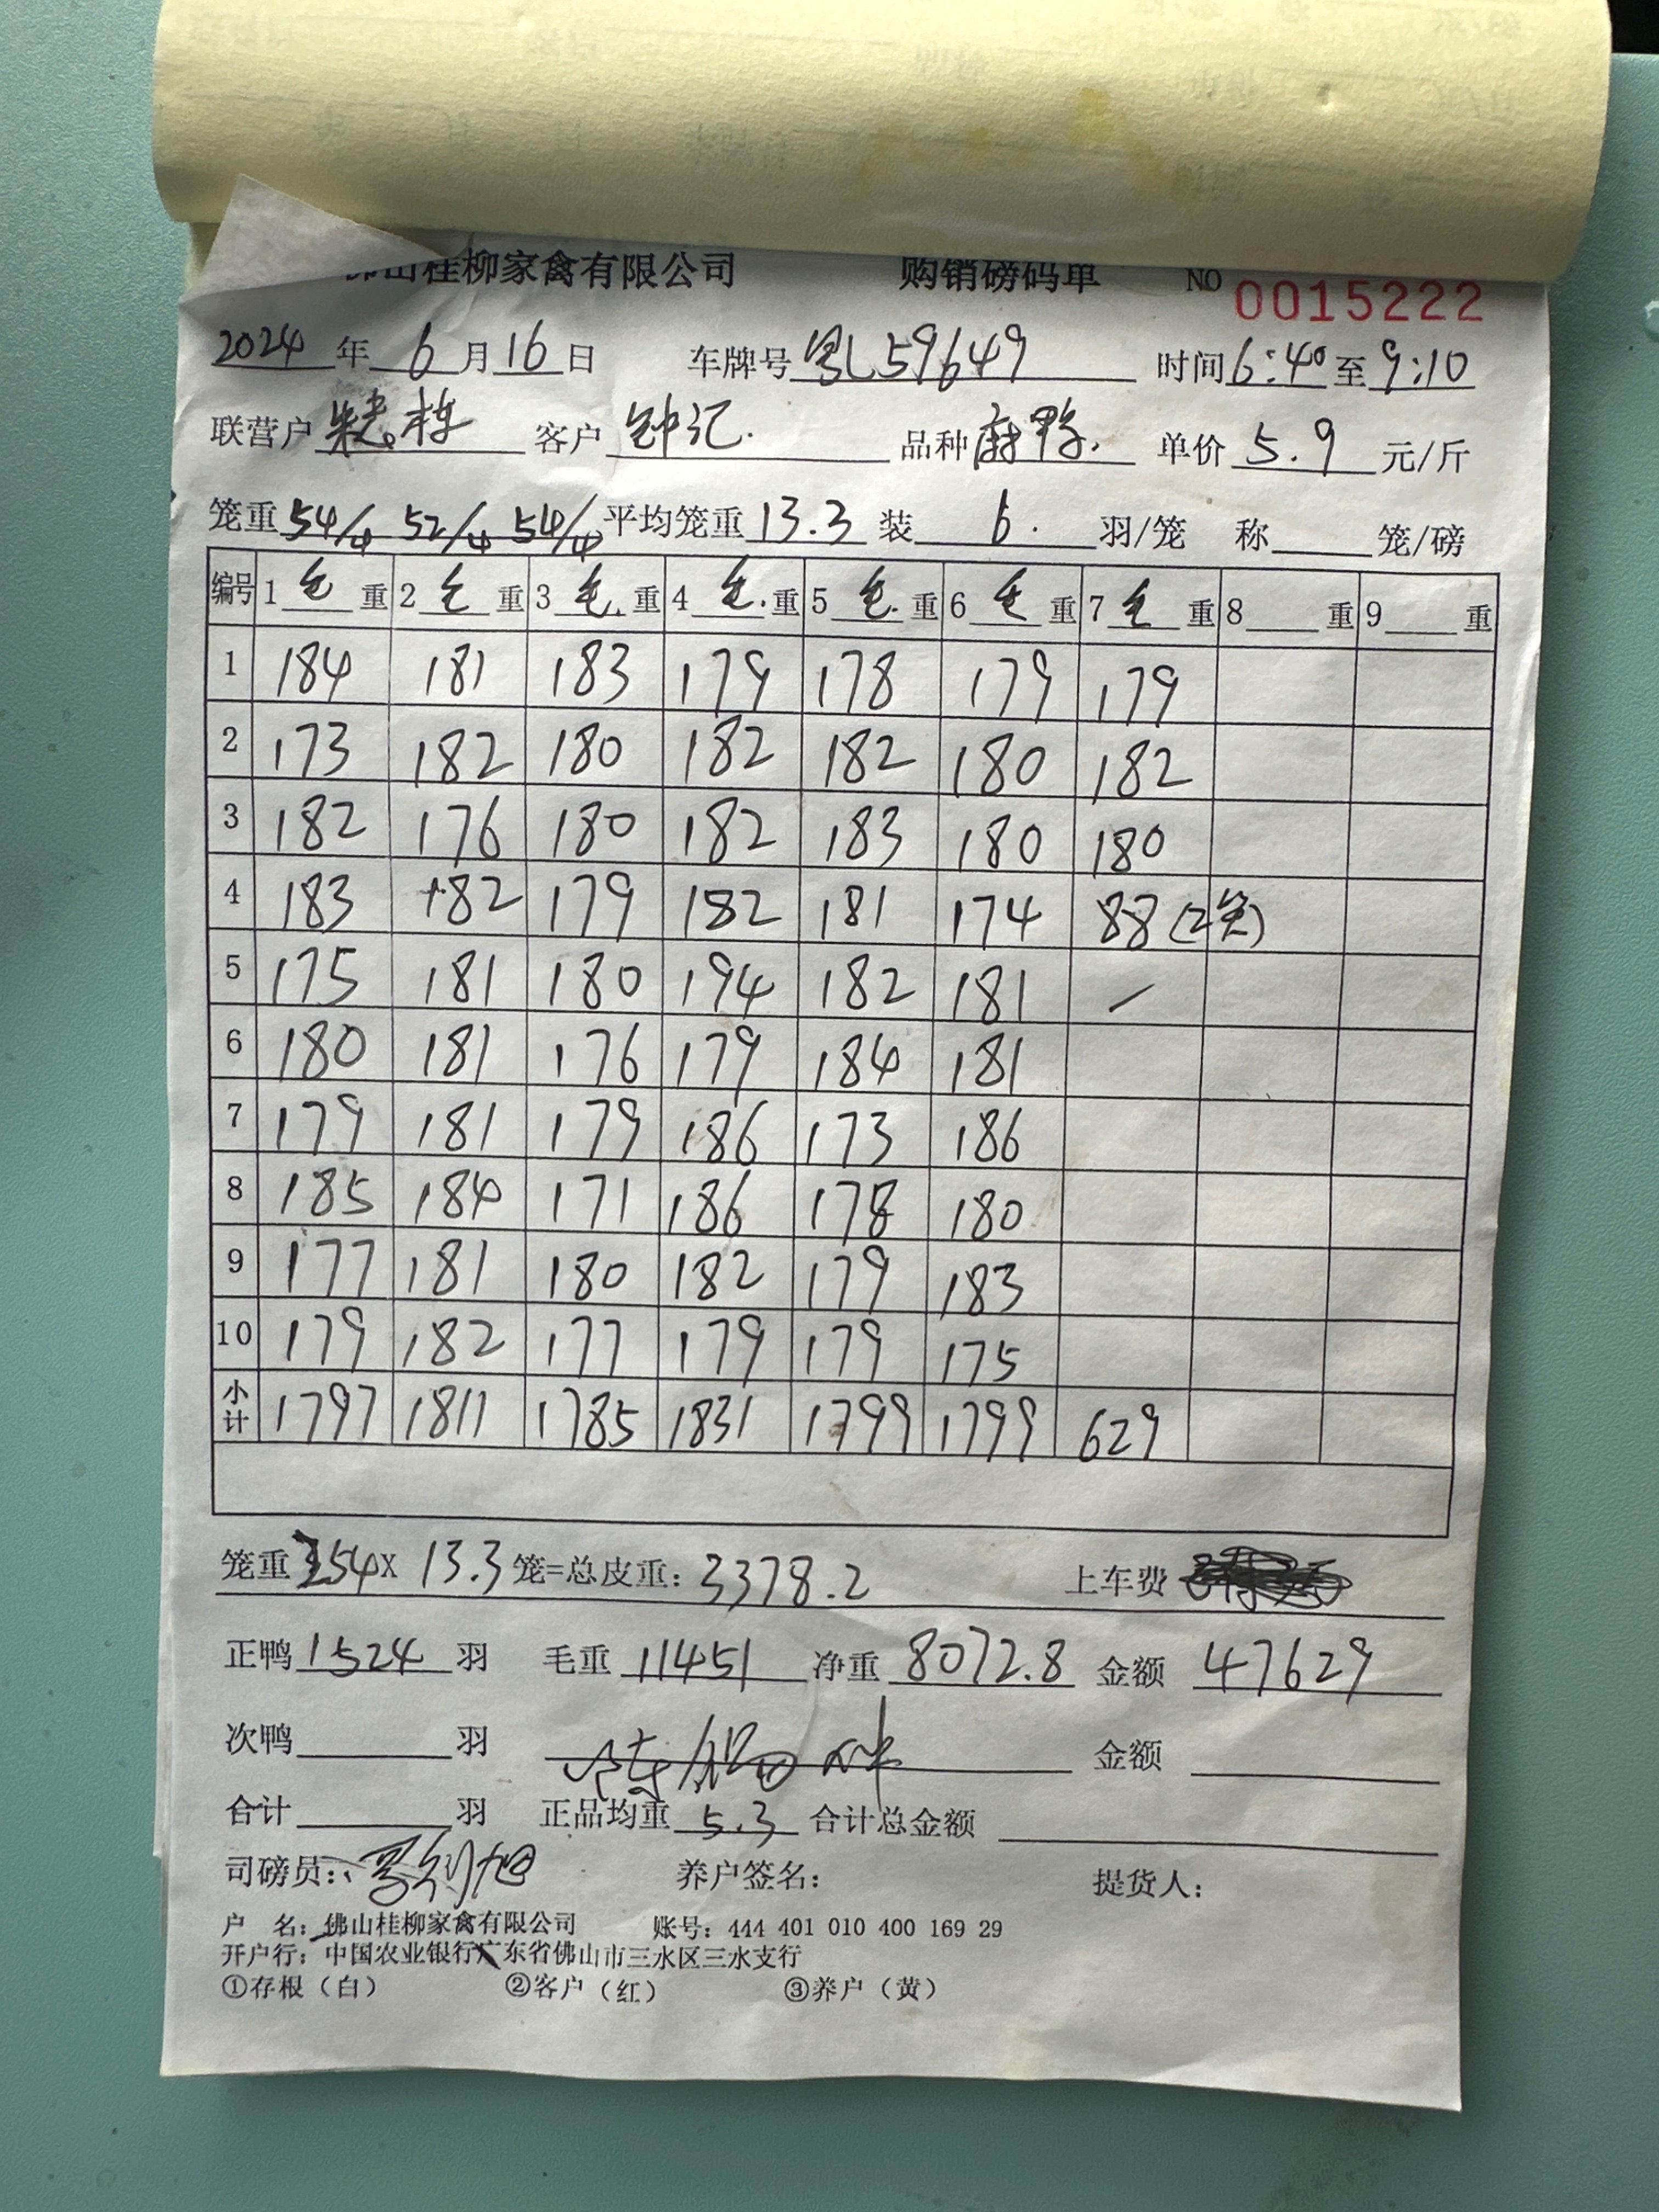 佛山桂柳家禽有限公司 购销磅码单 NO 0015222
2024年6月16日 车牌号 粤L59649 时间6:40至9:10
联营户 客户 钟记. 品种 麻鸭. 单价 5.9 元/斤
笼重 54/4 52/4 54/4 平均笼重 13.3 装 6. 羽/笼 称 笼/磅
编号 1 毛 重 2 毛 重 3 毛. 重 4 毛. 重 5 毛. 重 6 毛 重 7 毛 重 8 重 9 重
1 184 181 183 179 178 179 179
2 173 182 180 182 182 180 182
3 182 176 180 182 183 180 180
4 183 182 179 182 181 174 88 (2笼)
5 175 181 180 194 182 181 /
6 180 181 176 179 184 181
7 179 181 179 186 173 186
8 185 184 171 186 178 180
9 177 181 180 182 179 183
10 179 182 177 179 179 175
小计 1797 1811 1785 1831 1799 1799 629
笼重 254 X 13.3 笼=总皮重: 3378.2 上车费
正鸭 1524 羽 毛重 11451 净重 8072.8 金额 47629
次鸭 羽 金额
合计 羽 正品均重 5.3 合计总金额
司磅员: 养户签名: 提货人:
户 名: 佛山桂柳家禽有限公司 账号: 444 401 010 400 169 29
开户行: 中国农业银行广东省佛山市三水区三水支行
①存根(白) ②客户(红) ③养户(黄)